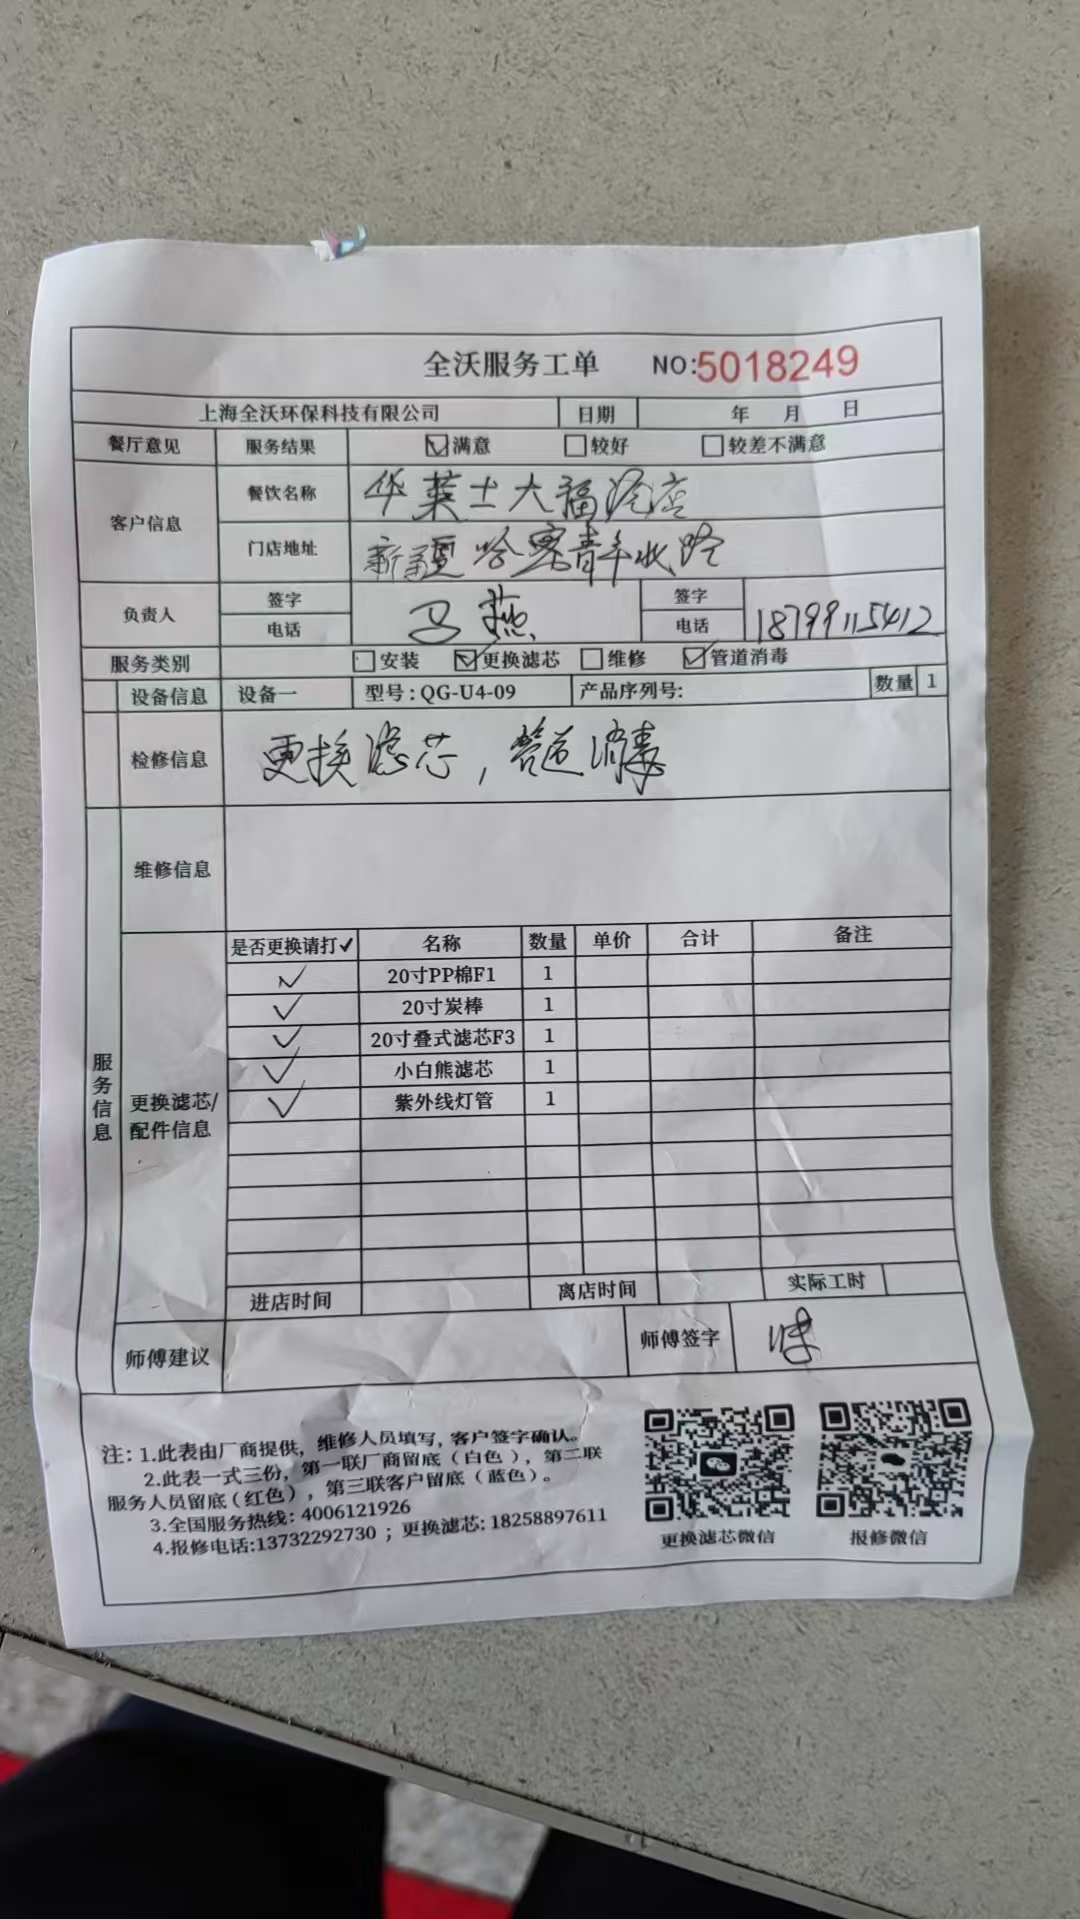 全沃服务工单 NO:5018249
上海全沃环保科技有限公司 日期 年 月 日
餐厅意见 服务结果 ☑满意 □较好 □较差不满意
客户信息 餐饮名称 华莱士大福源店
门店地址 新疆哈密青年北路
负责人 签字 马燕 签字
电话 电话 18799115412
服务类别 □安装 ☑更换滤芯 □维修 ☑管道消毒
设备信息 设备一 型号:QG-U4-09 产品序列号: 数量 1
检修信息 更换滤芯,管道消毒
维修信息
服务信息
更换滤芯/配件信息
是否更换请打✓ 名称 数量 单价 合计 备注
✓ 20寸PP棉F1 1
✓ 20寸炭棒 1
✓ 20寸叠式滤芯F3 1
✓ 小白熊滤芯 1
✓ 紫外线灯管 1
进店时间 离店时间 实际工时
师傅建议 师傅签字
注: 1.此表由厂商提供, 维修人员填写, 客户签字确认。
2.此表一式三份, 第一联厂商留底 (白色), 第二联
服务人员留底 (红色), 第三联客户留底 (蓝色)。
3.全国服务热线: 4006121926
4.报修电话:13732292730 ; 更换滤芯: 18258897611
更换滤芯微信 报修微信